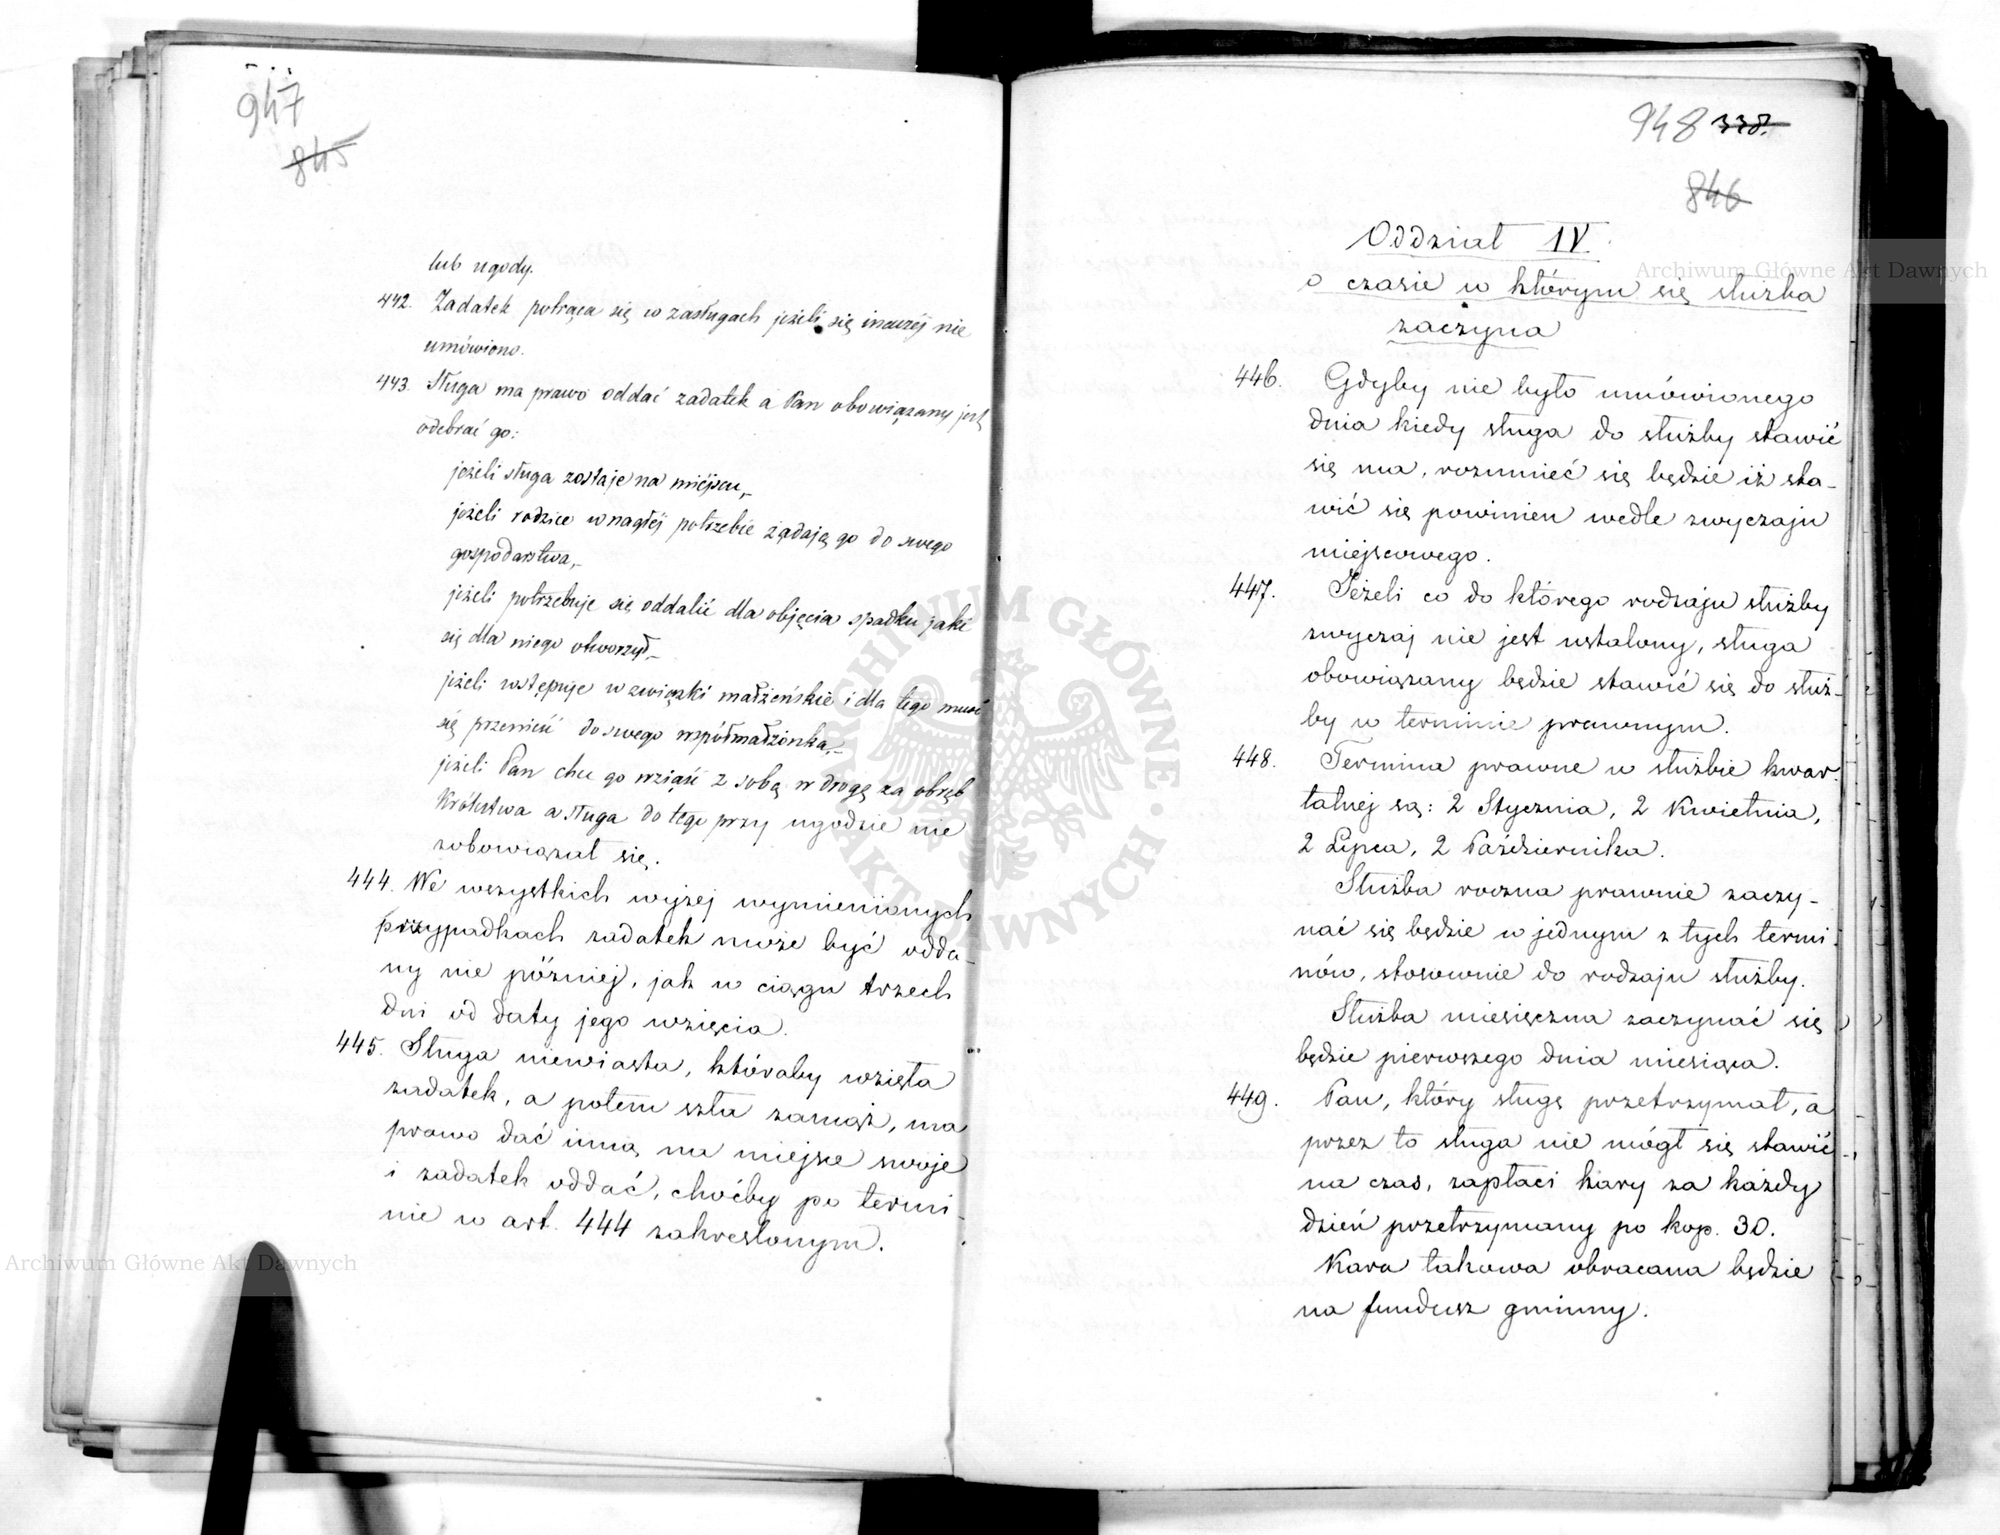 947
845
lub ugody.
442. Zadatek potrąca się w zasługach jeżeli się inaczéj nie
umówiono.
443. Sługa ma prawo oddać zadatek a Pan obowiązany jest
odebrać go:
jeżeli sługa zostaje na miéjscu,–
jeżeli rodzice w nagłéj potrzebie żądają go do swego
gospodarstwa,–
jeżeli potrzebuje się oddalić dla objęcia spadku jaki
się dla niego otworzył,–
jeżeli wstępuje w związki małżeńskie i dla tego musi
się przenieść do swego współmałżonka,–
jeżeli Pan chce go wziąść z sobą w drogę za obręb
Królestwa a sługa do tego przy ugodzie nie
zobowiązał się.
444. We wszystkich wyżej wymienionych
przypadkach zadatek może być odda–
ny nie później, jak w ciągu trzech
dni od daty jego wzięcia.
445. Sługa niewiasta, któraby wzięła
zadatek, a potem szła zamąż, ma
prawo dać inną na miejsce swoje
i zadatek oddać, choćby po termi–
nie w art. 444 zakreslonym.
948 338.
846
Oddział IV.
o czasie w którym się służba
zaczyna
446. Gdyby nie było umówionego
dnia kiedy sługa do służby stawić
się ma, rozumieć się będzie iż sta–
wić się powinien wedle zwyczaju
miejscowego.
447. Jeżeli co do którego rodzaju służby
zwyczaj nie jest ustalony, sługa
obowiązany będzie stawić się do służ–
by w terminie prawnym.
448. Termina prawne w służbie kwar–
talnej są: 2 Stycznia, 2 Kwietnia,
2 Lipca, 2 Października.
Służba roczna prawnie zaczy–
nać się będzie w jednym z tych termi–
nów, stosownie do rodzaju służby.
Służba miesięczna zaczynać się
będzie pierwszego dnia miesiąca.
449. Pan, który sługę przetrzymał, a
przez to sługa nie mógł się stawić
na czas, zapłaci kary za każdy
dzień przetrzymany po kop. 30.
Kara takowa obracana będzie
na fundusz gminny.
Archiwum Główne Akt Dawnych
ARCHIWUM GŁÓWNE AKT DAWNYCH
Archiwum Główne Akt Dawnych